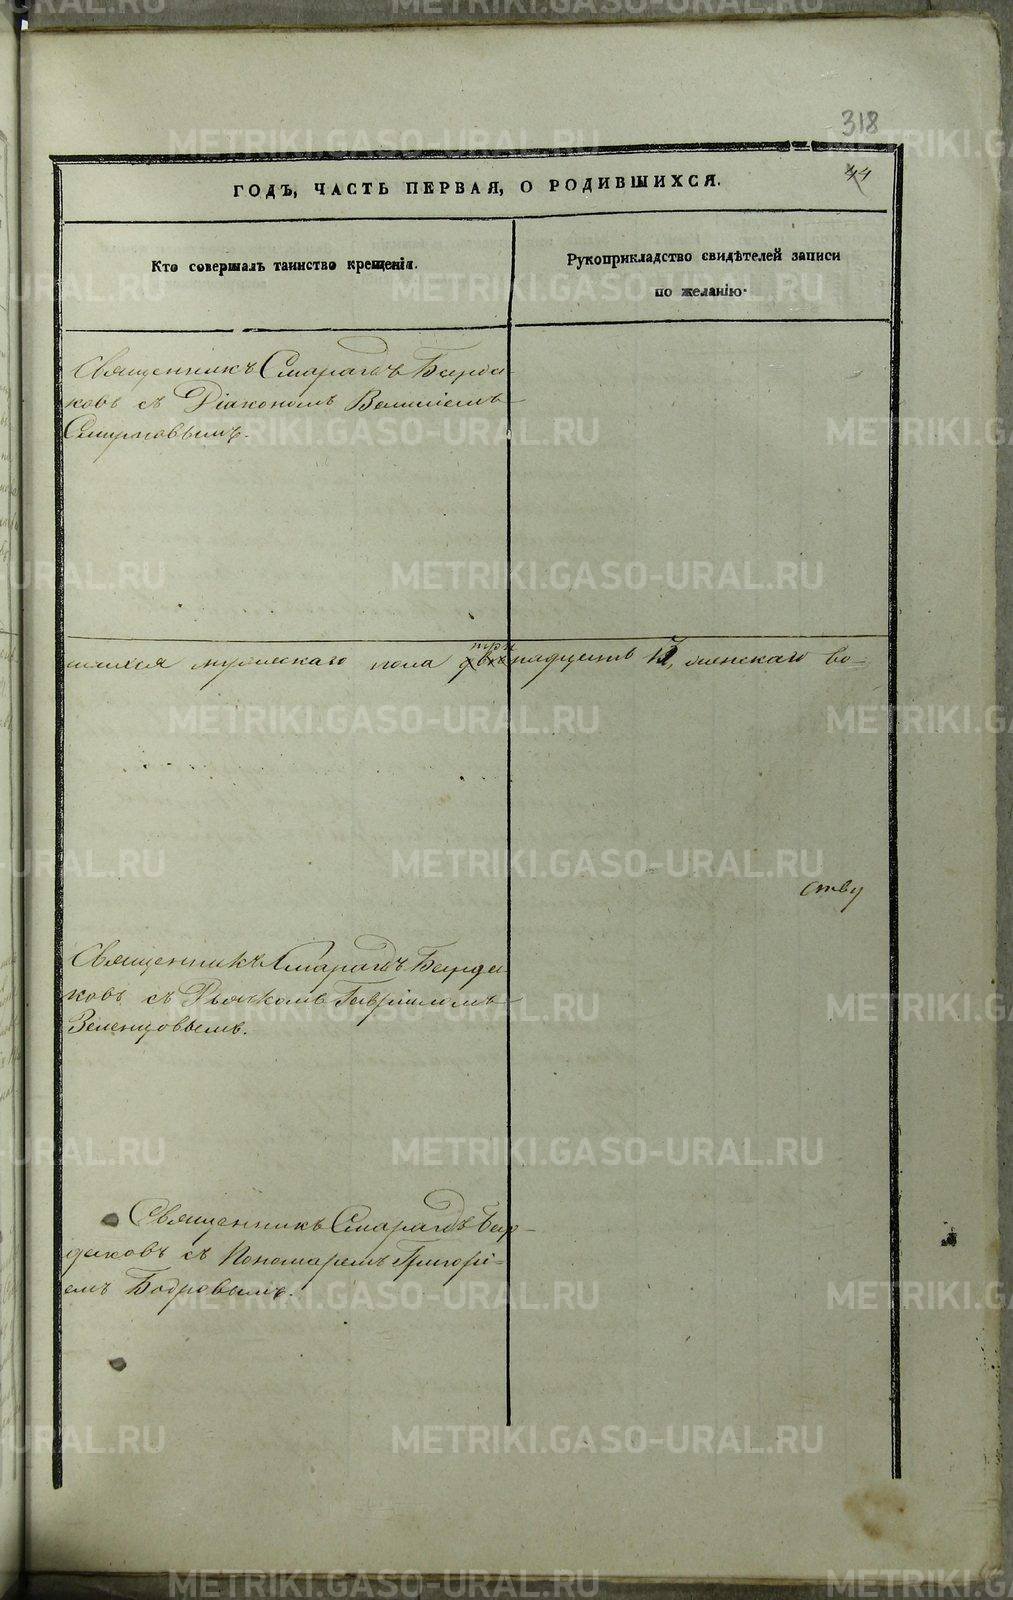 318
44
ГОДЪ, ЧАСТЬ ПЕРВАЯ, О РОДИВШИХСЯ.
Кто совершалъ таинство крещенія.
Рукоприкладство свидѣтелей записи
по желанію.
Священникъ Смарагдъ Бирда-
ковъ съ Діакономъ Василіемъ
Смирновымъ.
три
мужескаго пола двѣнадцать женскаго во-
ству
Священникъ Смарагдъ Бирда-
ковъ съ Дьячкомъ Гавріиломъ
Зеленцовымъ.
Священникъ Смарагдъ Бир-
даковъ съ Пономаремъ Григорі-
емъ Бодровымъ.
METRIKI.GASO-URAL.RU